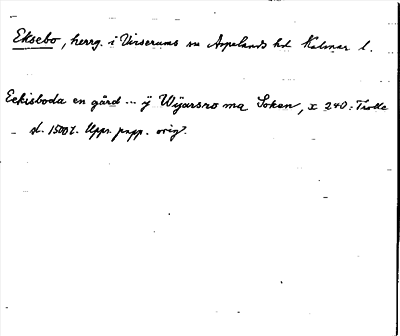 Eksebo, herrg. i Virserums sn Aspelands hd Kalmar l.
Eekisboda en gård ... ÿ Wÿarsro ma Soken, x 240: Trolle
sl. 1500 t. Upps. papp. orig.